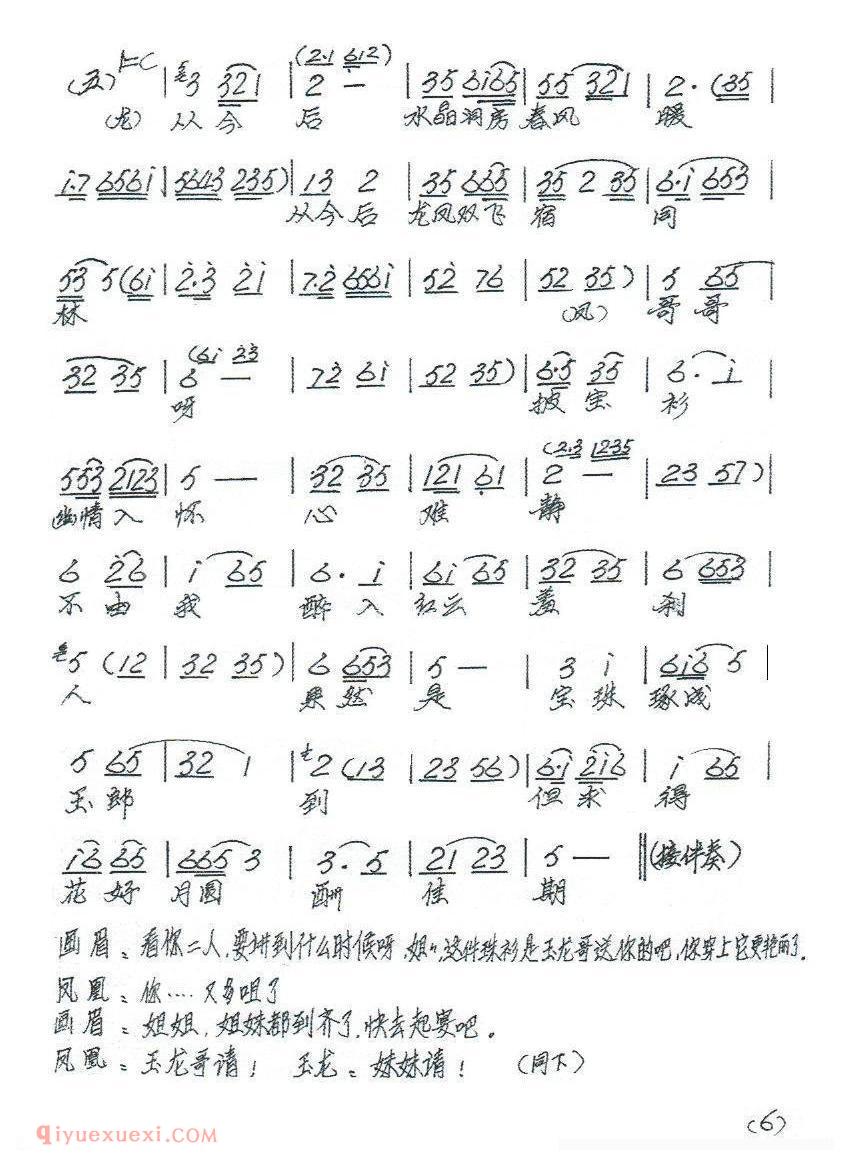 (五) 1=C | 3 321 | 2 — (2·1 612) | 35 6165 | 55 321 | 2· (35 |
(龙) 从今 后 水晶洞房 春风 暖
1·7 6561 | 5643 235) | 13 2 | 35 665 | 35 2 35 | 6·1 653 |
从今后 龙凤双飞 宿 同
53 5 (61 | 2·3 21 | 7·2 6561 | 52 76 | 52 35) | 5 65 |
林 (凤) 哥哥
32 35 | 6 — (61 23 | 72 61 | 52 35) | 6·5 35 | 6· 1 |
呀 披宝 衫
553 2123 | 5 — | 32 35 | 121 61 | 2 — (2·3 1235 | 23 57) |
幽情入 怀 心 难 静
6 26 | 1 65 | 6· 1 | 61 65 | 32 35 | 6 653 |
不由 我 醉入 红云 羞 刹
5 (12 | 32 35) | 6 653 | 5 — | 3 1 | 616 5 |
人 果然 是 宝珠 琢成
5 65 | 32 1 | 2 (13 | 23 56) | 6·1 216 | 1 65 |
玉郎 到 但求 得
16 65 | 665 3 | 3· 5 | 21 23 | 5 — ‖ (接伴奏)
花好 月圆 酬 佳 期
画眉：看你二人，要讲到什么时候呀，姐，这件珠衫是玉龙哥送你的吧，你穿上它更艳丽了。
凤凰：你……又多咀了
画眉：姐姐，姐妹都到齐了，快去起赛吧。
凤凰：玉龙哥请！ 玉龙：妹妹请！ (同下)
(6)
qiyuexuexi.com